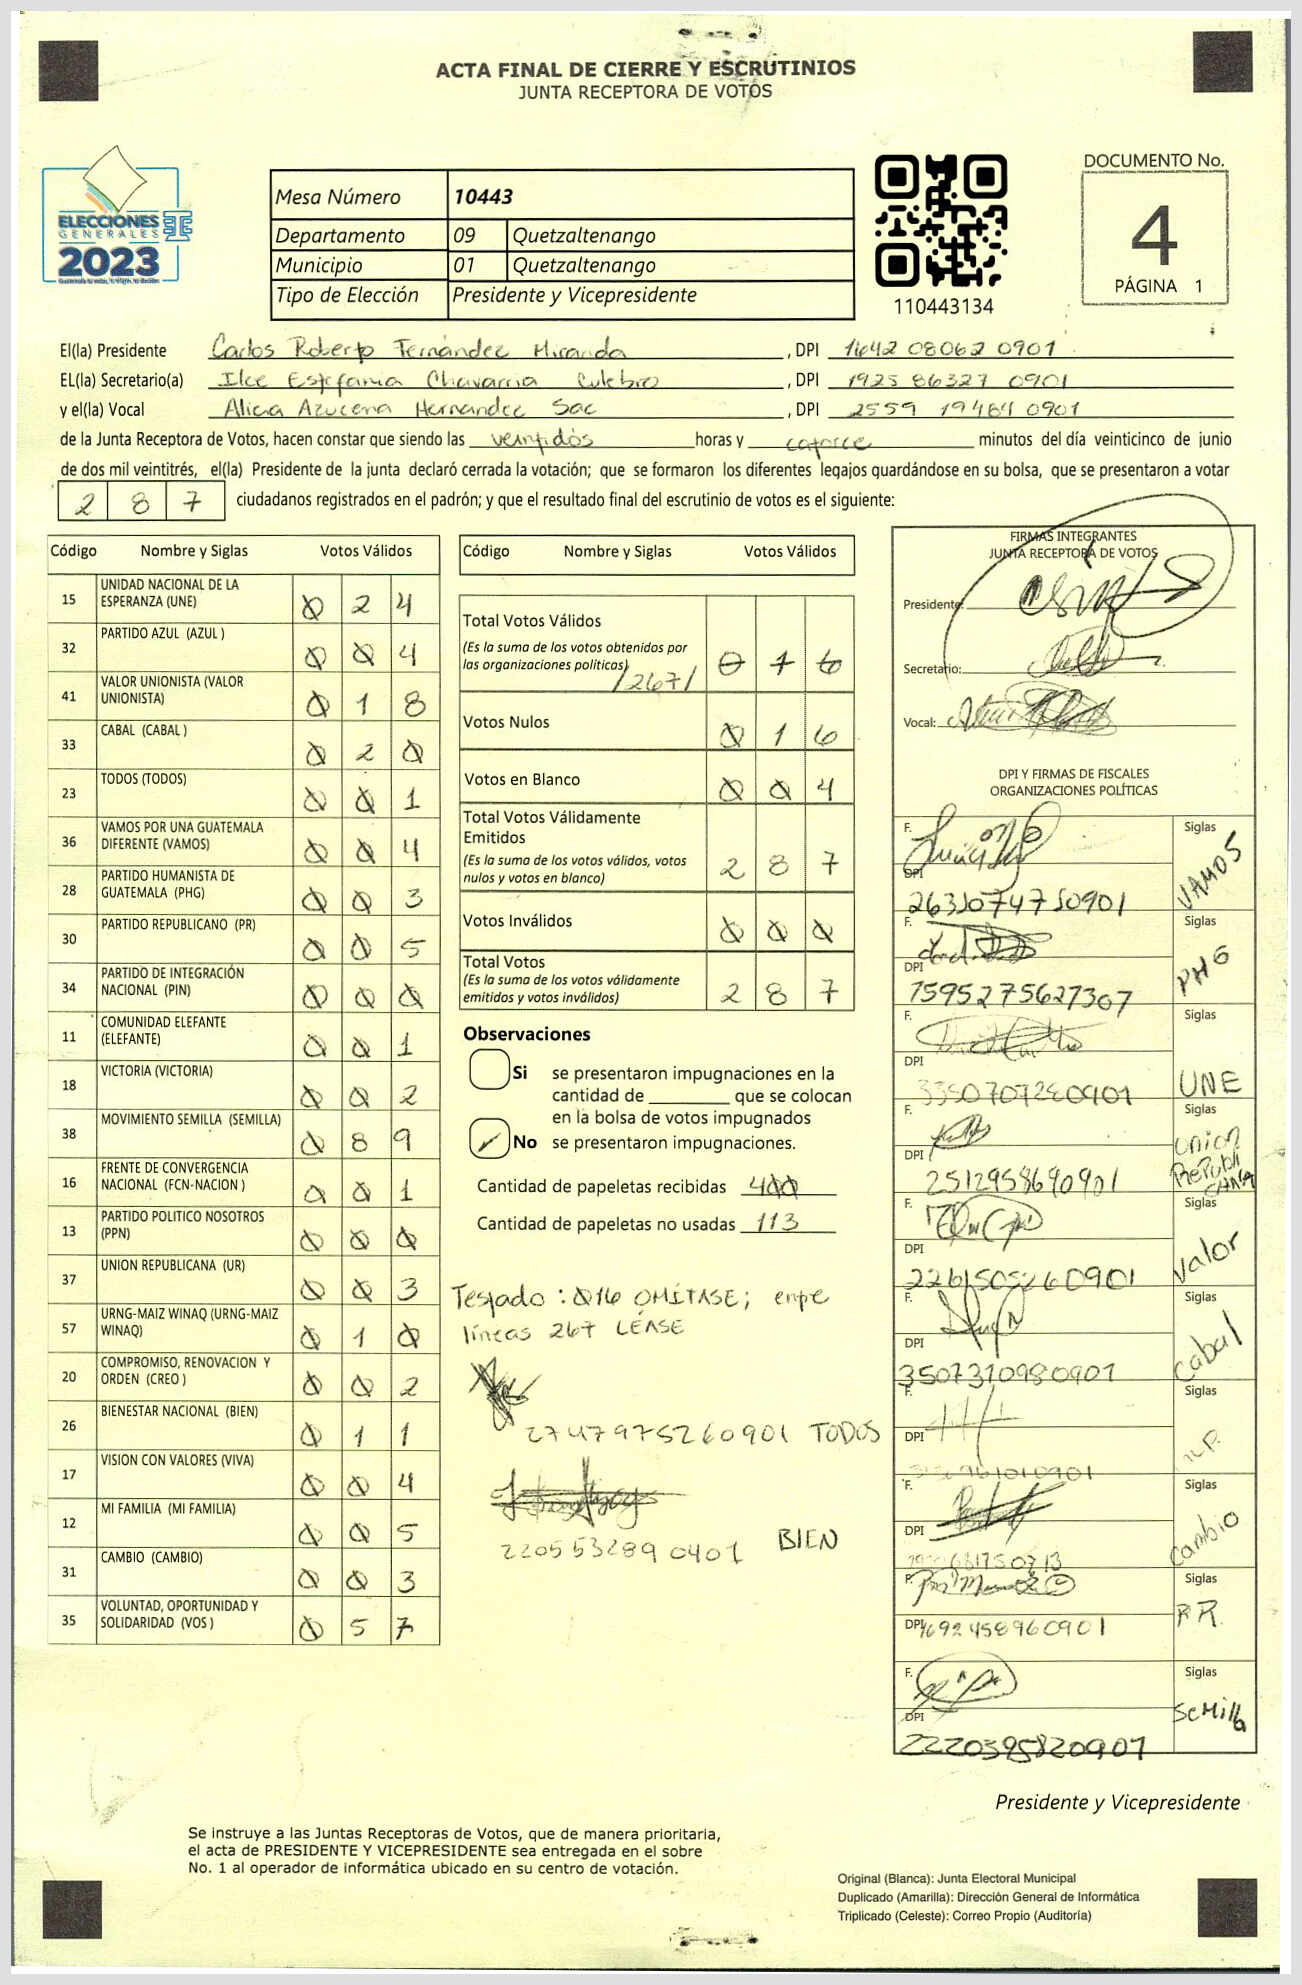 ACTA FINAL DE CIERRE Y ESCRUTINIOS
JUNTA RECEPTORA DE VOTOS
ELECCIONES
GENERALES
2023
Mesa Número 10443
Departamento 09 Quetzaltenango
Municipio 01 Quetzaltenango
Tipo de Elección Presidente y Vicepresidente
110443134
DOCUMENTO No.
4
PÁGINA 1
El(la) Presidente Carlos Roberto Fernández Miranda, DPI 1642 08062 0901
EL(la) Secretario(a) Ilce Estefania Chavarria Culebro, DPI 1925 86327 0901
y el(la) Vocal Alicia Azucena Hernandez Sac, DPI 2559 19484 0901
de la Junta Receptora de Votos, hacen constar que siendo las veintidós horas y catorce minutos del día veinticinco de junio
de dos mil veintitrés, el(la) Presidente de la junta declaró cerrada la votación; que se formaron los diferentes legajos guardándose en su bolsa, que se presentaron a votar
2 8 7 ciudadanos registrados en el padrón; y que el resultado final del escrutinio de votos es el siguiente:
Código Nombre y Siglas Votos Válidos
15 UNIDAD NACIONAL DE LA ESPERANZA (UNE) 0 2 4
32 PARTIDO AZUL (AZUL ) 0 0 4
41 VALOR UNIONISTA (VALOR UNIONISTA) 0 1 8
33 CABAL (CABAL ) 0 2 0
23 TODOS (TODOS) 0 0 1
36 VAMOS POR UNA GUATEMALA DIFERENTE (VAMOS) 0 0 4
28 PARTIDO HUMANISTA DE GUATEMALA (PHG) 0 0 3
30 PARTIDO REPUBLICANO (PR) 0 0 5
34 PARTIDO DE INTEGRACIÓN NACIONAL (PIN) 0 0 0
11 COMUNIDAD ELEFANTE (ELEFANTE) 0 0 1
18 VICTORIA (VICTORIA) 0 0 2
38 MOVIMIENTO SEMILLA (SEMILLA) 0 8 9
16 FRENTE DE CONVERGENCIA NACIONAL (FCN-NACION ) 0 0 1
13 PARTIDO POLITICO NOSOTROS (PPN) 0 0 0
37 UNION REPUBLICANA (UR) 0 0 3
57 URNG-MAIZ WINAQ (URNG-MAIZ WINAQ) 0 1 0
20 COMPROMISO, RENOVACION Y ORDEN (CREO ) 0 0 2
26 BIENESTAR NACIONAL (BIEN) 0 1 1
17 VISION CON VALORES (VIVA) 0 0 4
12 MI FAMILIA (MI FAMILIA) 0 0 5
31 CAMBIO (CAMBIO) 0 0 3
35 VOLUNTAD, OPORTUNIDAD Y SOLIDARIDAD (VOS ) 0 5 7
Código Nombre y Siglas Votos Válidos
Total Votos Válidos
(Es la suma de los votos obtenidos por
las organizaciones políticas) /267/ 0 1 6
Votos Nulos 0 1 6
Votos en Blanco 0 0 4
Total Votos Válidamente
Emitidos
(Es la suma de los votos válidos, votos
nulos y votos en blanco) 2 8 7
Votos Inválidos 0 0 0
Total Votos
(Es la suma de los votos válidamente
emitidos y votos inválidos) 2 8 7
Observaciones
Si se presentaron impugnaciones en la
cantidad de ________ que se colocan
en la bolsa de votos impugnados
No se presentaron impugnaciones.
Cantidad de papeletas recibidas 400
Cantidad de papeletas no usadas 113
Testado : 016 OMÍTASE; entre
líneas 267 LÉASE
2747975260901 TODOS
220553289 0401 BIEN
FIRMAS INTEGRANTES
JUNTA RECEPTORA DE VOTOS
Presidente:
Secretario:
Vocal:
DPI Y FIRMAS DE FISCALES
ORGANIZACIONES POLÍTICAS
F. Siglas
DPI VAMOS
F. Siglas
DPI PHG
1595275627307
F. Siglas
DPI UNE
3350707280901
F. Siglas
DPI Union Republi cana
2512958690901
F. Siglas
DPI Valor
2261505260901
F. Siglas
DPI Cabal
3507310980901
F. Siglas
DPI
F. Siglas
DPI Cambio
F. Siglas
DPI 1692458960901
F. Siglas
DPI Semilla
2220395820901
Presidente y Vicepresidente
Se instruye a las Juntas Receptoras de Votos, que de manera prioritaria,
el acta de PRESIDENTE Y VICEPRESIDENTE sea entregada en el sobre
No. 1 al operador de informática ubicado en su centro de votación.
Original (Blanca): Junta Electoral Municipal
Duplicado (Amarilla): Dirección General de Informática
Triplicado (Celeste): Correo Propio (Auditoría)